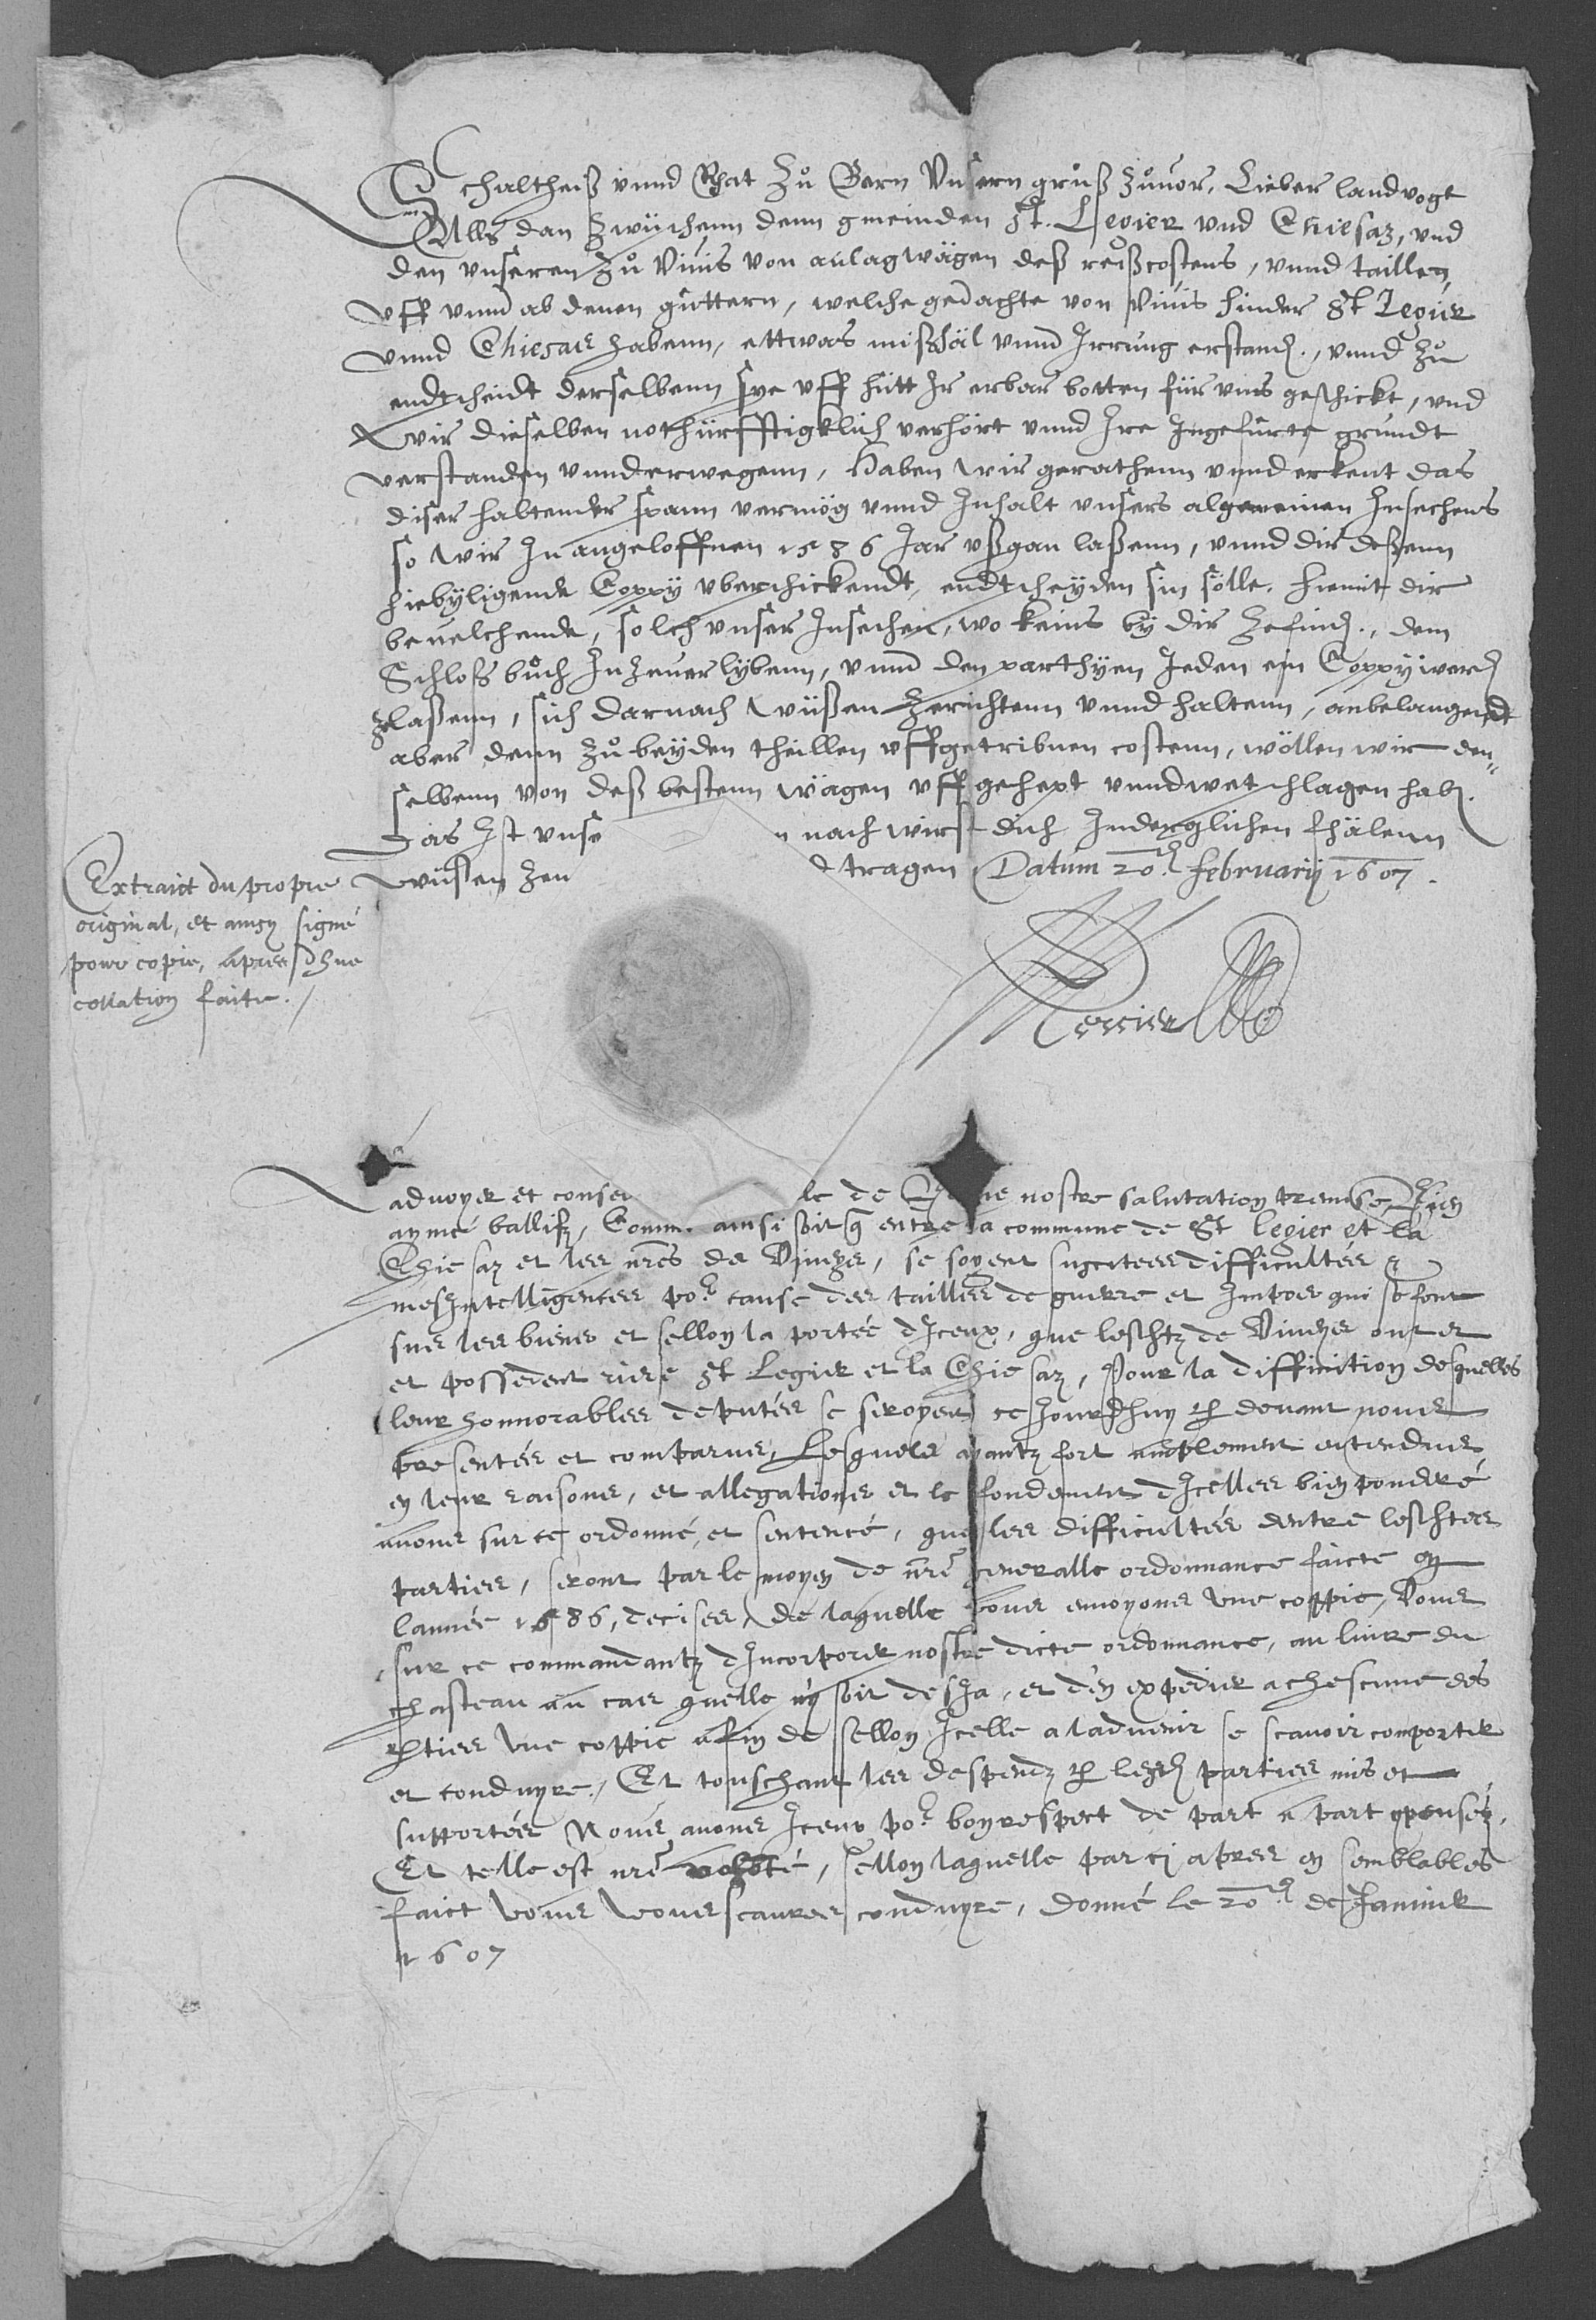 Schaltheiß vnnd Rhat Zů Bern Vnsern grůß zůuor, Lieber landvogt
Alls dan Zwüschenn denn gmeinden St. Legier vnd Chiesaz, vnd
den vnseren Zů Viuis von anlag wägen deß reißcostens, vnnd taillen,
vff vnnd ab denen güttern, welche gedachte von Viuis hinder St Legier
vnnd Chiesaz habenn, ettwas mißhäl vnnd Irrung erstand., vnnd Zů
endtscheidt derselbenn sye vff hütt Ir erbar botten für vns geschickt, vnd
Wir dieselben nothürfftigklich verhört vnnd Ire Ingefürte gründt
verstanden vnnd erwegenn, Haben wir gerathenn vnnd erkent das
diser haltender spann vermög vnnd Inhalt vnsers algemeinen Insechens
so wir In angeloffnen 1586 Jar vßgan laßenn, vnnd dir deßenn
hiebyligende Coppy vberschickendt, endtscheyden sin sölle. hiemit dir
beuelchende, solch vnser Insechen, wo keins by dir Zefind., dem
Schloß bůch Inzeuerlybenn, vnnd den parthyen Jeden ein Coppy werd
zelaßenn, sich darnach Wüßen Zerichtenn vnnd haltenn, anbelangendt
aber denn Zů beyden theillen vffgetribnen costenn, wöllen wir den„
selbenn von deß bestenn wägen vffgehept vnnd wetschlagen hab.
Das Ist vnse n nach wirst dich In derglichen fhälenn
wüssen zen d tragen Datum 20.ᵈ februarij 1607.
Extraict du propre
original, et ainsy signé
pour copie, apres dhue
collation faite./
Perrier
aduoyer et conse le de Be ne nostre salutation premise, Bien
aymé ballifz, Comm. ainsi soit q entre la commune de St legier et la
Chiesaz et les nrēs de Viueys, se soyent suscitees difficultés &
mesintelligences poʳ cause des tailles de guerre et Impos qui se font
sur les biens et sellon la portée d'Iceux, que lesdtz de Viueys ont et
et possedent riere St Legier et la Chiesaz, Pour la diffinition desquelles
leur honnorables deputés se seroyent ce Jourdhuy p devant nous
presentés et comparus, Lesquels ayantz fort amplement entendus
en leur raisons, et allegations et le fondement dIcelles bien pondré
auons sur ce ordonné, et sentencé, que les difficultés dentre lesdtes
parties, seront par le moyen de nrē generalle ordonnance faicte en
lannée 1586, decises, de laquelle vous enuoyons vne coppie, Vous
sur ce commandantz dIncorporer nostre dicte ordonnance, au liure du
chasteau au cas quelle n'y soit desja, et d'en expedier a chescune des
pties vne coppie afin de sellon Icelle a laduenir se scauoir comporter
et conduyre./ Et touschant les despendz p lesd parties mis et
supportés Nous auons Iceux poʳ bon respect de part a part compensés.
Et telle est nrē volonté, sellon laquelle par cj apres en semblables
faict vous vous scaures conduyre, donné le 20ᵉ de Januier
1607